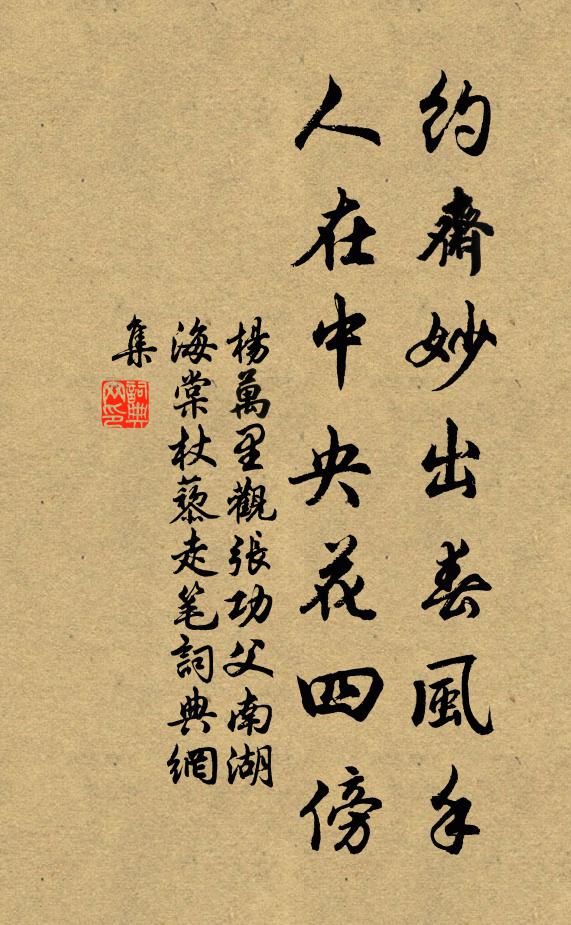 約齋妙出春風手
人在中央花四傍
楊萬里觀張功父南湖
海棠杖藜走笔詞典網
集
詞典网印